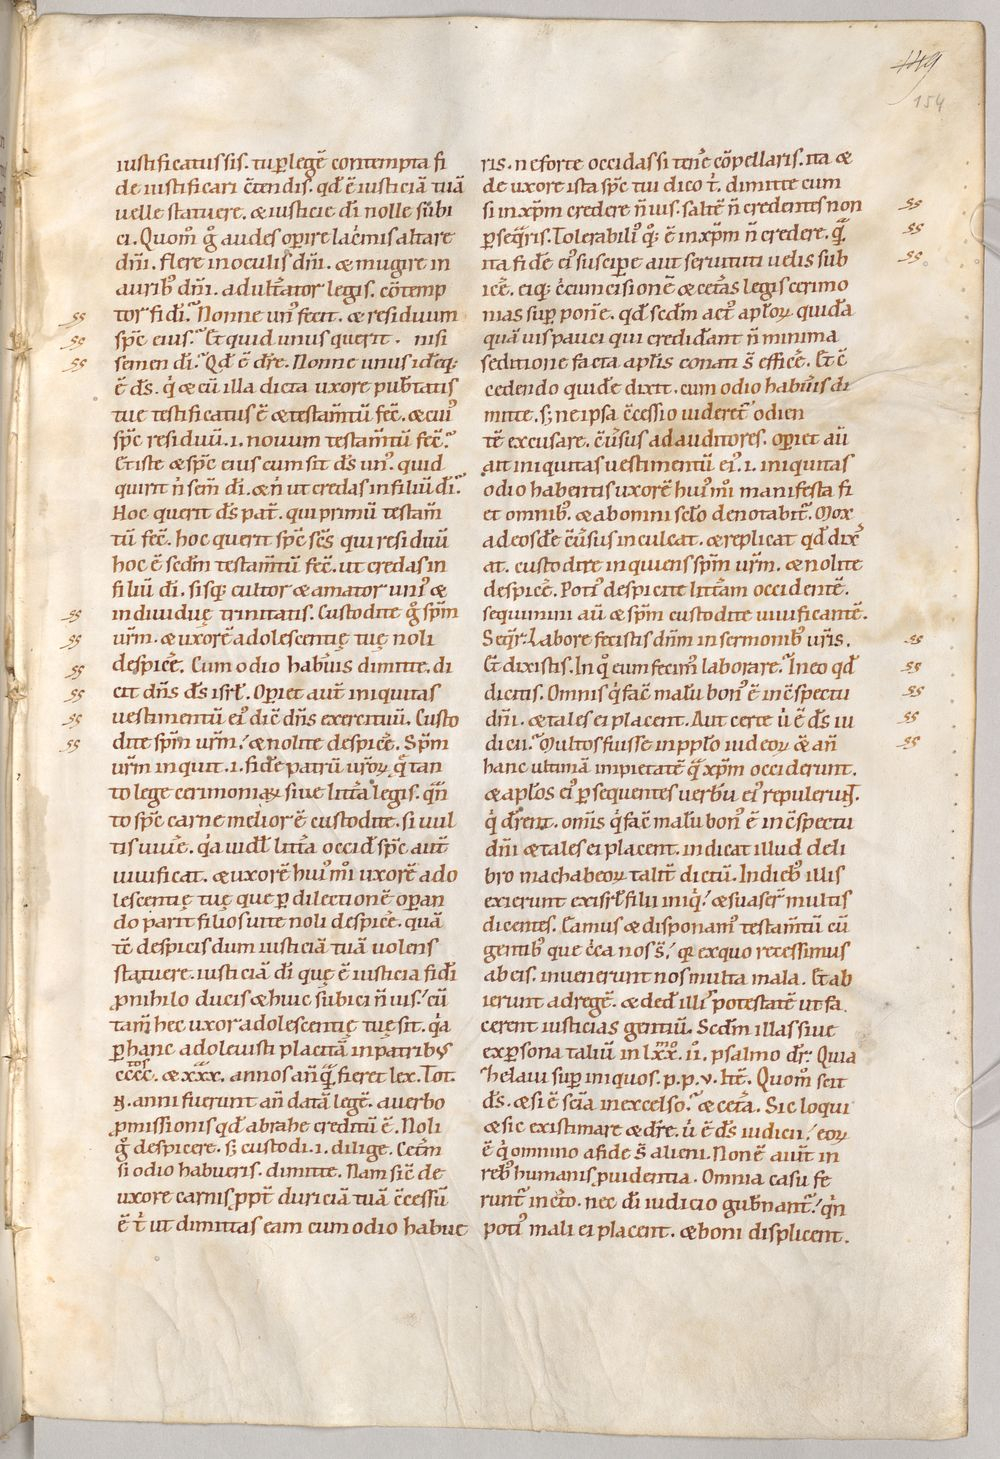 149
154
iustificatus sis. tu ꝑ legē contempta fi
de iustificari c̄tendis. qd̄ ē iusticiā tuā
uelle statuere. & iusticie dī nolle subi
ci. Quom̄ g̊ audes operire lac̄mis altare
dn̄i. flere in oculis dn̄i. & mugire in
aurib; dn̄i. adult̄ator legis. cōtemp
tor fidi. Nonne un' fecit. & residuum
sp̄c eius? Et quid unus querit. nisi
semen di? Qd̄ ē dr̄e. Nonne unus id ēq;
ē ds̄. q̇ & cū illa dicta uxore pub̄tatis
tue testificatus ē & testam̄tū fec̄. & cui'
sp̄c residuū .i. nouum testam̄tū fec̄?
Et iste & sp̄c eius cum sit ds̄ un'. quid
quirit n̄ sem̄ di. & n̄ ut credas in filiū di?
Hoc querit ds̄ pat̄. qui primū testam̄
tū fec̄. hoc querit sp̄c sc̄s qui residuū
hoc ē sedm̄ testam̄tū fec̄. ut credas in
filiū di. sisq; cultor & amator uni' &
indiuiduę trinitatis. Custodite g̊ sp̄m
ur̄m. & uxorē adolescentię tuę noli
despicē. Cum odio habūis dimitte. di
cit dn̄s ds̄ isrl̄. Opiet aut̄ iniquitas
uestimentū ei' dic̄ dn̄s exercituū. Custo
dite sp̄m ur̄m. & nolite despicē. Sp̄m
ur̄m inquit .i. fidē patrū uroꝝ q̄ tan
to lege cerimoniaꝝ siue litt̄a legis. q̄n
to sp̄c carne melior ē custodite. si uul
tis uiuē. q̇a uidl̄ litt̄a occid̄ sp̄c aut̄
uiuificat. & uxorē hui' m̊i uxorē ado
lescentię tuę que ꝑ dilectionē operan
do parit filios uite noli despicē. quā
tē despicis dum iusticiā tuā uolens
statuere. iusticiā dī quę ē iusticia fidi
ꝓ nihilo ducis & huic subici n̄ uis. cū
tam̄ hec uxor adolescentię tuę sit. q̇a
ꝑ hanc adoleuisti placitā in patrib;
cccc. & xxx. annos an̄ q̄ fieret lex. Tot.
n. anni fuerunt an̄ datā legē. a uerbo
ꝓmissionis qd̄ abrahe creditū ē. Noli
g̊ despicere. s; custodi .i. dilige. Cet̄m
si odio habueris. dimitte. Nam sic̄ de
uxore carnis ꝓpt̄ duriciā tuā c̄cessū
ē t̄ ut dimittas eam cum odio habue
ris. ne forte occidas si tenē cōpellaris. ita &
de uxore ista sp̄c tui dico t̄. dimitte eum
si in xp̄m credere n̄ uis. saltē n̄ credentis non
ꝑseq̄ris. Tolerabili' q; ē in xp̄m n̄ credere. q̄
ita fidē ei' suscipe aut seruituti uelis sub
icē. eiq; c̄cumcisionē & cet̄as legis cerimo
nias supponē. qd̄ sedm̄ act' apl̄oꝝ quidā
quāuis pauci qui credidant n̄ minima
seditione facta apl̄is conati s̄ efficē. Et c̄
cedendo quidē dixit. cum odio habūis di
mitte. s; ne ipsa c̄cessio uideret̄ odien
tē excusare. c̄uersus ad auditores. opiet aū
ait iniquitas uestimentū ei'. i. iniquitas
odio habentis uxorē hui' m̊i manifesta fi
et omnib;. & ab omni sc̄lo denotabit̄. Mox
ad eosdē c̄uersus inculcat. & replicat qd̄ dix̄
at. custodite inquiens sp̄m ur̄m. & nolite
despicē. Poti' despicite litt̄am occidentē.
sequimini aū & sp̄m custodite uiuificantē.
Seqr̄. Labore fecistis dn̄m in sermonib; ur̄is.
Et dixistis. In q̊ eum fecim' laborare? In eo qd̄
dicitis. Omnis q̇ fac̄ malū bon' ē in c̄spectu
dn̄i. & tales ei placent. Aut certe u̇ ē ds̄ iu
dicii? Multos fuisse in ppl̄o iudeoꝝ & an̄
hanc ultimā impietatē q̄ xp̄m occiderunt.
& apl̄os ei' ꝑsequentes uerbū ei' repuleruꝉ.
q̇ dr̄ent. omīs q̇ fac̄ malū bon' ē in c̄spectu
dn̄i & tales ei placent. indicat illud de li
bro machabeoꝝ talit̄ dictū. In dieb; illis
exierunt ex isrl̄ filii iniq̇. & suaser̄ multis
dicentes. Eamus & disponam' testam̄tū cū
gentib; que c̄ca nos s̄. qꝛ ex quo recessimus
ab eis. inuenerunt nos multa mala. Et ab
ierunt ad regē. & ded̄ illi' potestatē ut fa
cerent iusticias gentiū. Sedm̄ illas siue
ex ꝑsona taliū in lxx. ii. psalmo dr̄. Quia
helaui sup iniquos. p. p. v. hē. Quom̄ scit
ds̄. & si ē scīa in excelso? & cet̄a. Sic loqui
& sic existimare & dr̄e. u̇ ē ds̄ iudicii. eoꝝ
ē q̇ omnino a fide s̄ alieni. Non ē aut̄ in
reb; humanis ꝓuidentia. Omnia casu fe
runt̄ inc̄to. nec dī iudicio gub̄nant̄. q̇n
poti' mali ei placent. & boni displicent.